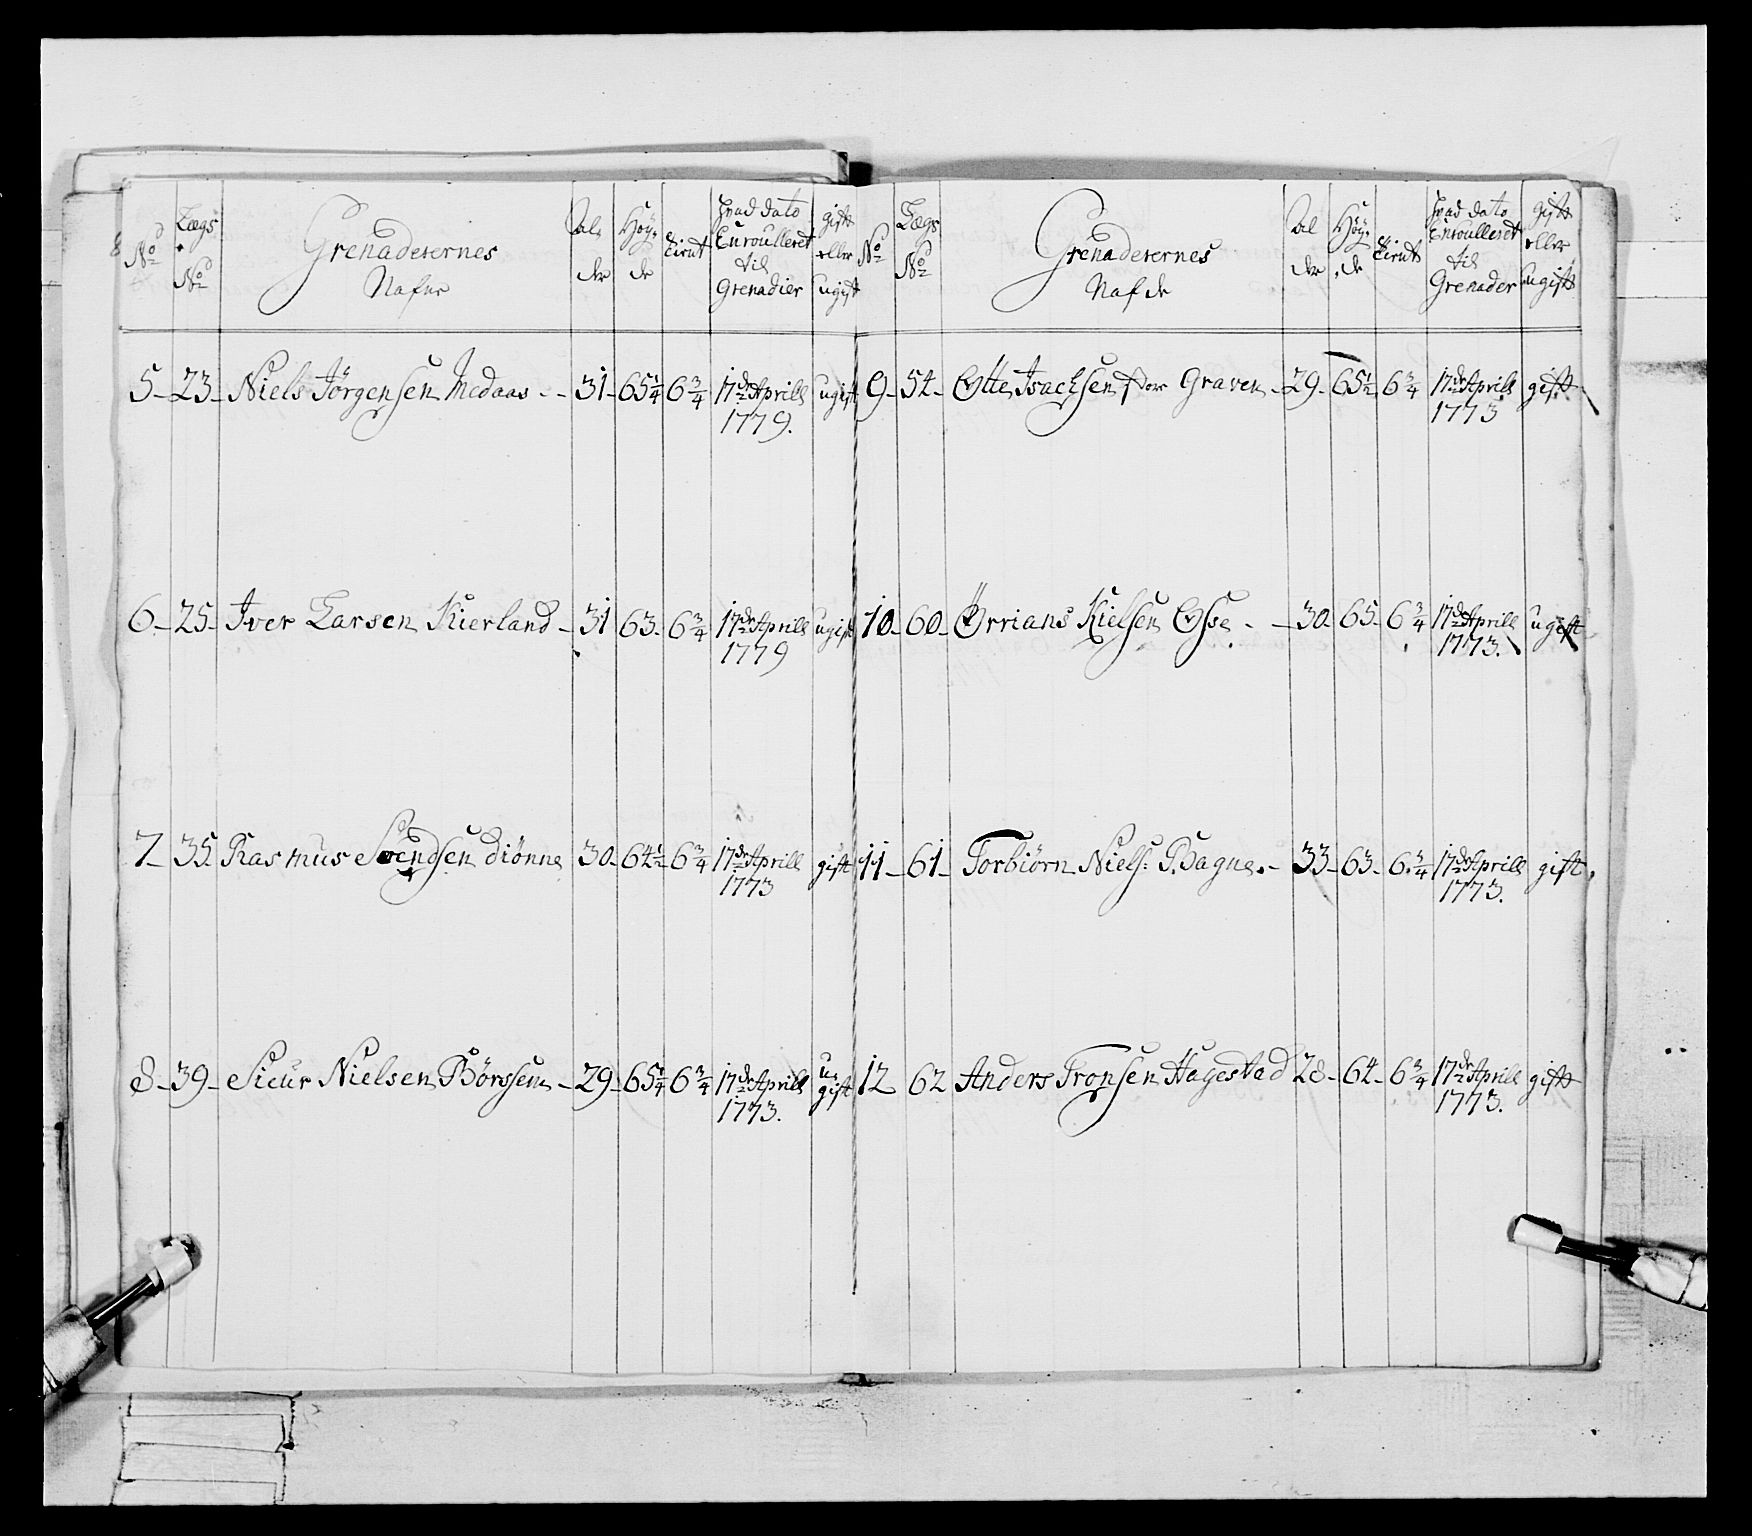 No Lægs No Grenaderernes Nafne Alder Høyde Cirut hvad dato Enroulleret til Grenadier gift eller ugift
5 23 Niels Jörgensen Medaas 31 65 1/4 6 3/4 17de Aprill 1779. ugift
6 25 Iver Larsen Kierland 31 63 6 3/4 17de Aprill 1779 ugift
7 35 Rasmus Svendsen diönne 30 64 1/2 6 3/4 17de Aprill 1773 gift
8 39 Sieur Nielsen Börssem 29 65 1/4 6 3/4 17de Aprill 1773. ugift
No Lægs No Grenaderernes Nafne Alder Höyde Cirut hvad dato Enroulleret til Grenader gift eller ugift
9 54 Otte Isachsen for Graven 29 65 1/2 6 3/4 17de Aprill 1773 gift
10 60 Örrians Kielsen Osse 30 65 6 3/4 17de Aprill 1773. ugift
11 61 Torbiörn Niels: Bagne 33 63 6 3/4 17de Aprill 1773. gift
12 62 Anders Tronsen Hagestad 28 64 6 3/4 17de Aprill 1773. gift